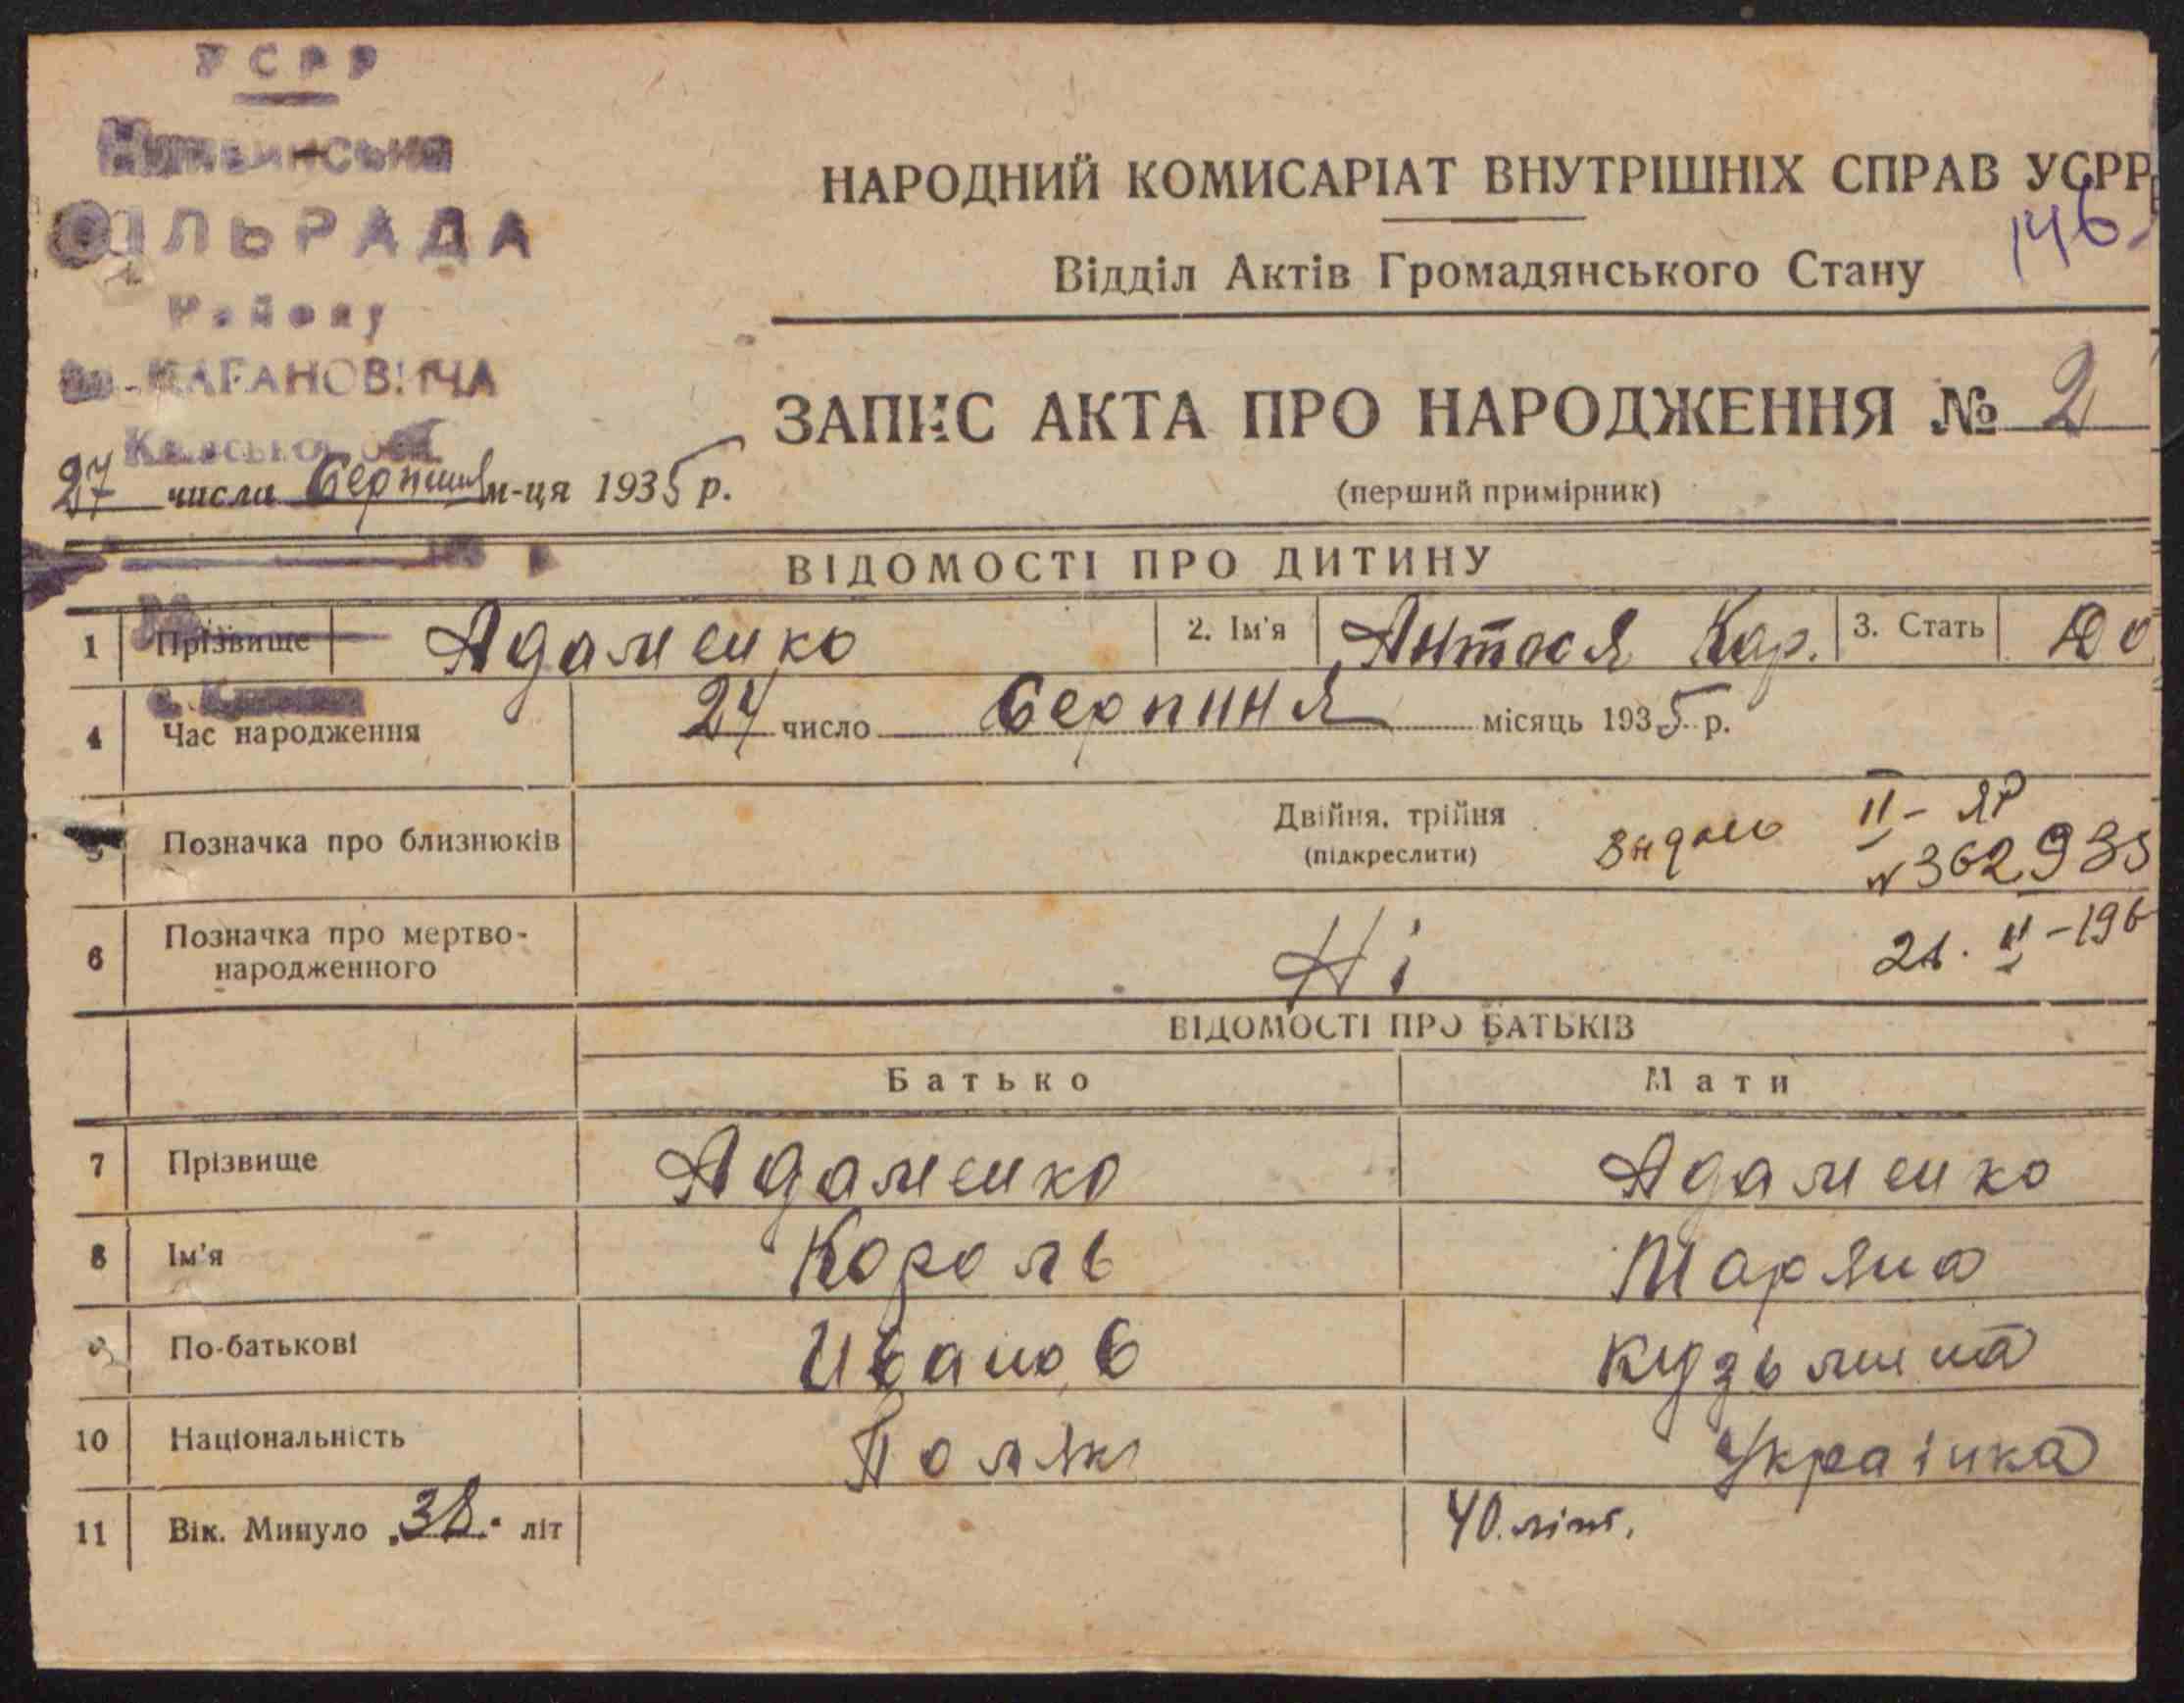 УСРР
СІЛЬРАДА
Району
ім. КАГАНОВИЧА
Київської обл.
27 числа Серпня м-ця 1935 р.
НАРОДНИЙ КОМИСАРІАТ ВНУТРІШНІХ СПРАВ УСРР
146
Відділ Актів Громадянського Стану
ЗАПИС АКТА ПРО НАРОДЖЕННЯ № 2
(перший примірник)
ВІДОМОСТІ ПРО ДИТИНУ
1 Прізвище Адаменко 2. Ім'я Антося Кар. 3. Стать
4 Час народження 24 число Серпння місяць 1935 р.
5 Позначка про близнюків Двійня, трійня (підкреслити) видано II - ЯР
№ 362935
6 Позначка про мертво-народженного Ні 21. II - 196
ВІДОМОСТІ ПРО БАТЬКІВ
Батько Мати
7 Прізвище Адаменко Адаменко
8 Ім'я Кароль Маряна
9 По-батькові Иванов Кузьмина
10 Національність Поляк Украінка
11 Вік. Минуло 38 літ 40. літ.